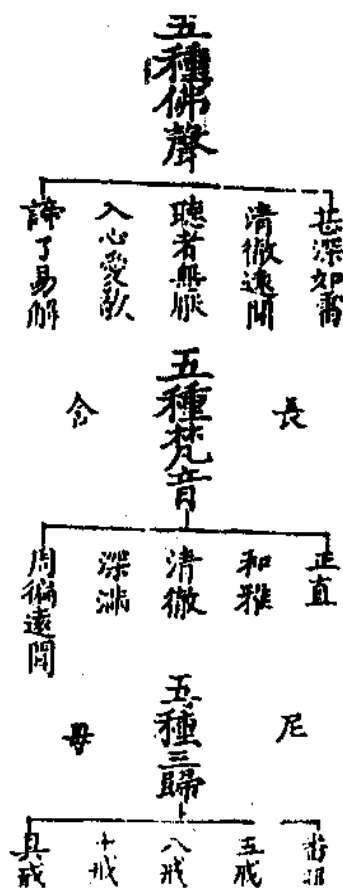 五種佛聲
甚深如雷
清徹遠聞
聽者無厭
入心愛敬
諦了易解
長
五種梵音
含
正直
和雅
清徹
深滿
周徧遠聞
尼
五種三歸
母
五戒
八戒
十戒
具戒